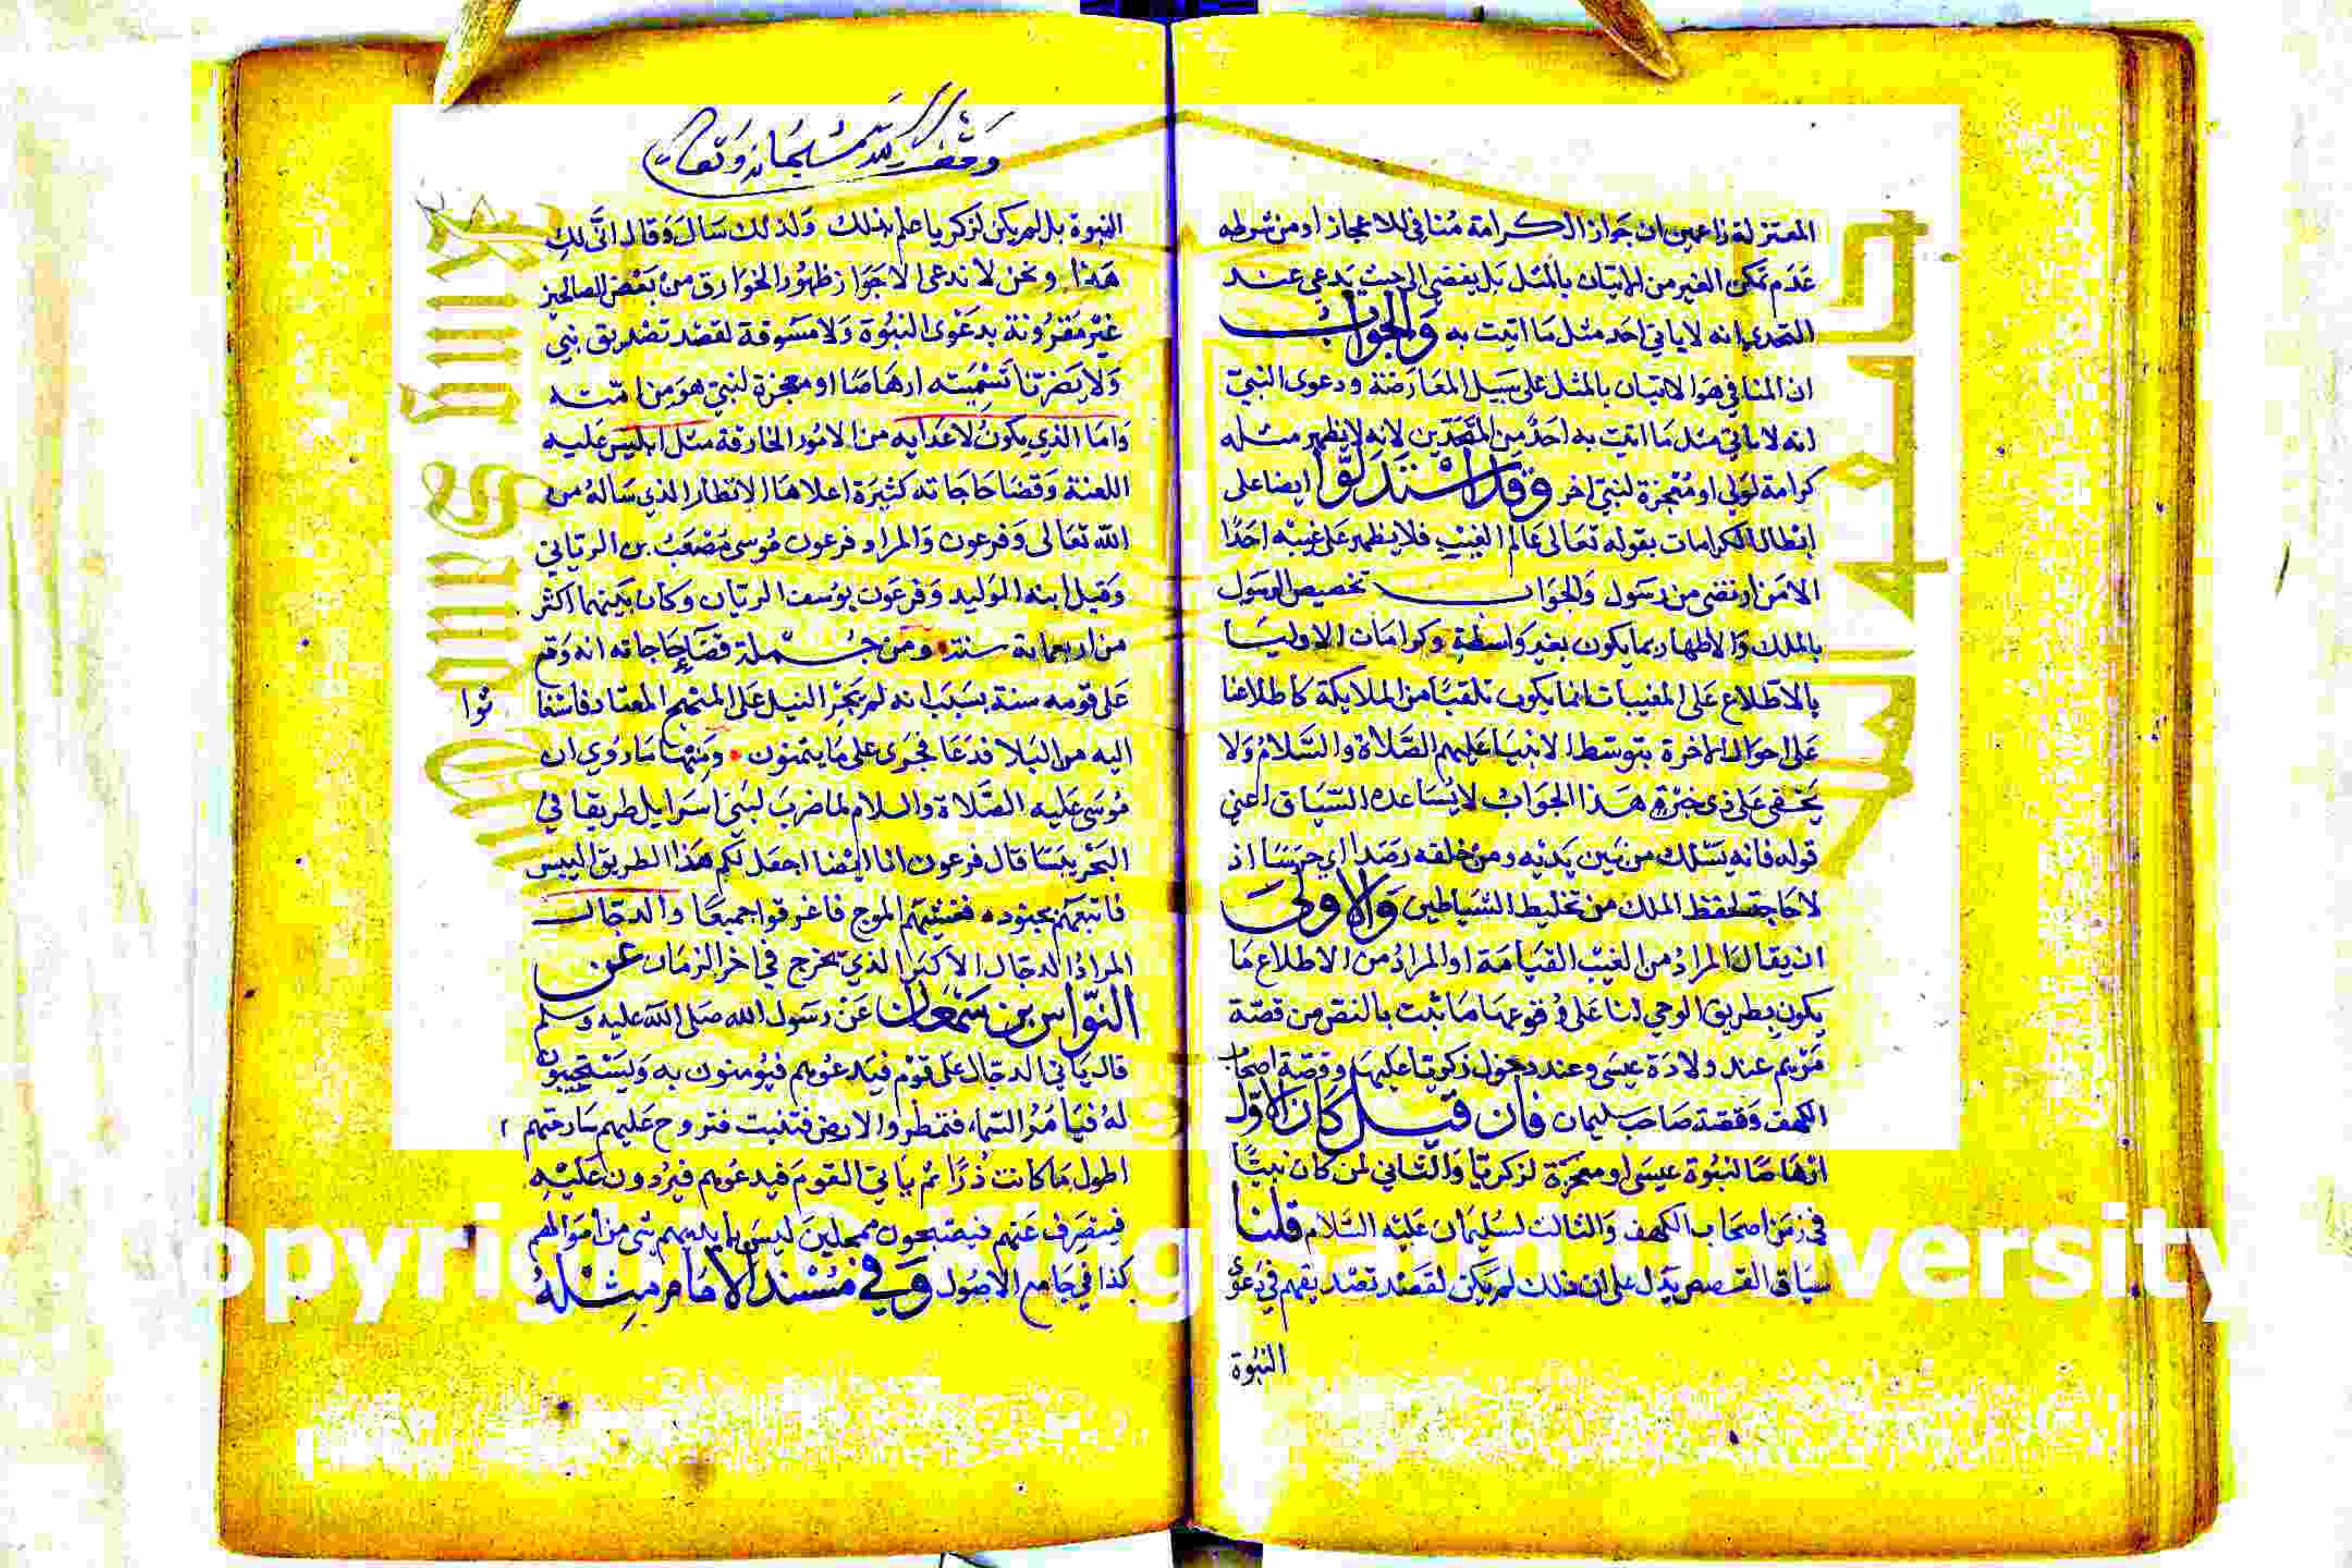 المعتزلة زاعمين ان جواز الكرامة منافي للاعجاز اذ من شرطه
عدم تمكن الغير من الاتيان بالمثل بل يفضي الى حيث يدعى عند
التحدي انه لا ياتي احد مثل ما اتيت به والجواب
ان المنافي هو الاتيان بالمثل على سبيل المعارضة ودعوى النبي
انه لا ياتي مثل ما اتيت به احد من المتحدين لانه لا يظهر مثله
كرامة لولي او معجزة لنبي اخر وقد استدلوا ايضا على
ابطال الكرامات بقوله تعالى عالم الغيب فلا يظهر على غيبه احدا
الا من ارتضى من رسول والجواب تخصيص الرسول
بالملك والاظهار بما يكون بغير واسطة وكرامات الاوليا
بالاطلاع على المغيبات انما يكون تلقيا من الملايكة كاطلاعنا
على احوال الاخرة بتوسط الانبيا عليهم الصلاة والسلام ولا
يخفى على ذي خبرة هذا الجواب لا يساعده السياق اعني
قوله فانه يسلك من بين يديه ومن خلفه رصدا اي حرسا اذ
لا حاجة لحفظ الملك من تخليط الشياطين والاولى
ان يقال المراد من الغيب القيامة او المراد من الاطلاع ما
يكون بطريق الوحي لنا على وقوعها ما ثبت بالنص من قصة
مريم عند ولادة عيسى وعند دخول زكريا عليها وقصة اصحاب
الكهف وقصة صاحب سليمان فان قيل كان الاول
ارهاصا لنبوة عيسى او معجزة لزكريا والثاني لمن كان نبيا
في زمن اصحاب الكهف والثالث لسليمان عليه السلام قلنا
سياق القصص يدل على ان ذلك لم يكن لقصد تصديقهم في دعوى
النبوة
النبوة بل لم يكن لزكريا علم بذلك ولذلك سال وقال انى لك
هذا ونحن لا ندعى الا جواز ظهور الخوارق من بعض الصالحين
غير مقرونة بدعوى النبوة ولا مسوقة لقصد تصديق نبي
ولا يضرنا تسميته ارهاصا او معجزة لنبي هو من امته
واما الذي يكون لاعدايه من الامور الخارقة مثل ابليس عليه
اللعنة وقضا حاجاته كثيرة اعلاها الانظار الذي ساله من
الله تعالى وفرعون والمراد فرعون موسى مصعب بن الرياني
وقيل ابنه الوليد وفرعون يوسف الريان وكان بينهما اكثر
من اربعماية سنة ومن جملة قضا حاجاته انه وقع
على قومه سنة بسبب انه لم يجر النيل على المنهج المعتاد فاستغا
ثوا
اليه من البلا فدعا فجرى على ما يتمنون ومنها ما روي ان
موسى عليه الصلاة والسلام لما ضرب لبني اسرايل طريقا في
البحر يبسا قال فرعون انا ايضا اجعل لكم هذا الطريق اليبس
فاتبعهم بجنوده فغشيهم الموج فاغرقوا جميعا والدجال
المراد الدجال الاكبر الذي يخرج في اخر الزمان عن
النواس بن سمعان عن رسول الله صلى الله عليه وسلم
قال ياتي الدجال على قوم فيدعوهم فيؤمنون به ويستجيبون
له فيامر السماء فتمطر والارض فتنبت فتروح عليهم سارحتهم
اطول ما كانت ذرا ثم ياتي القوم فيدعوهم فيردون عليه
فينصرف عنهم فيصبحون ممحلين ليس بايديهم شي من اموالهم
كذا في جامع الاصول وفي مسند الامام مثله
opyright © King Saud University